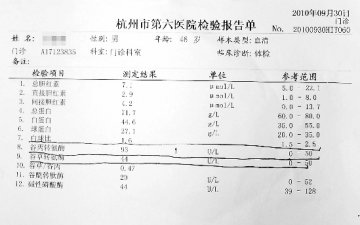 2010年09月30日
杭州市第六医院检验报告单
No. 20100930HIT060
姓名: 性别: 男 年龄: 46 岁 样本类型: 血清
门诊 A17123835 科室: 门诊科室 临床诊断: 体检
备注:
检验项目 测定结果 单位 参考范围
1. 总胆红素 7.1 μmol/L 5.0 - 22.1
2. 直接胆红素 2.9 μmol/L 1.0 - 8.0
3. 间接胆红素 4.2 μmol/L 0.0 - 13.7
4. 总蛋白 71.7 g/L 60.0 - 80.0
5. 白蛋白 44.6 g/L 35.0 - 55.0
6. 球蛋白 27.1 g/L 20.0 - 35.0
7. 白球比 1.6 1.5 - 2.5
8. 谷丙转氨酶 93 U/L 0 - 50
9. 谷草转氨酶 44 U/L 0 - 50
10. 谷草/谷丙 0.47
11. 谷酰转肽酶 29 U/L 0 - 52
12. 碱性磷酸酶 44 U/L 39 - 128